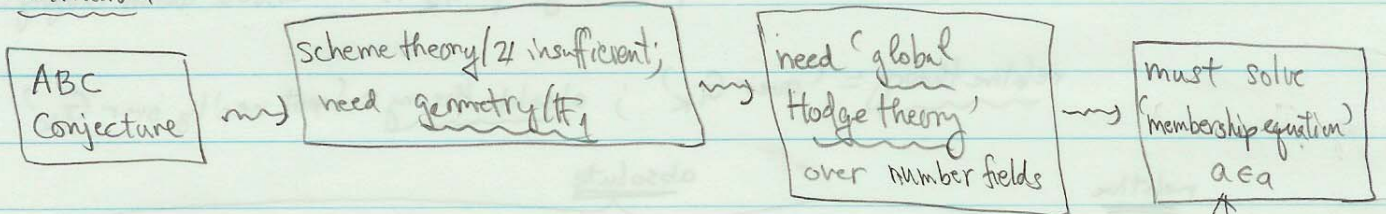 ABC
Conjecture
scheme theory/ℤ insufficient;
need geometry/𝔽₁
need 'global
Hodge theory'
over number fields
must solve
'membership equation'
a∈a
absolute